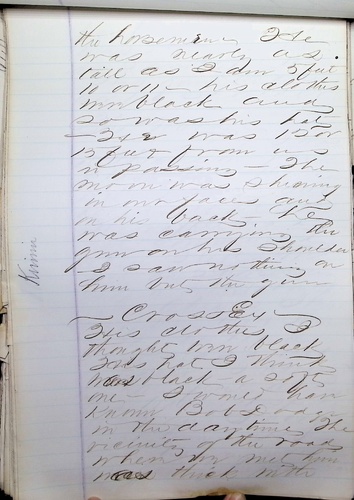 the horseman, He
was nearly as
tall as I am 5 feet
10 or 11 - his clothes
were black and
so was his hat
- He was 12 or
15 feet from us
in passing - The
moon was shining
in our faces and
on his back - he
was carrying the
gun on his shoulder
- I saw nothing on
him but the gun
Cross Ex
His clothes I
thought were black
his hat I think
was black a soft
one - I would have
known Bob
in the daytime The
vicinity of the road
where we met him
was thick with